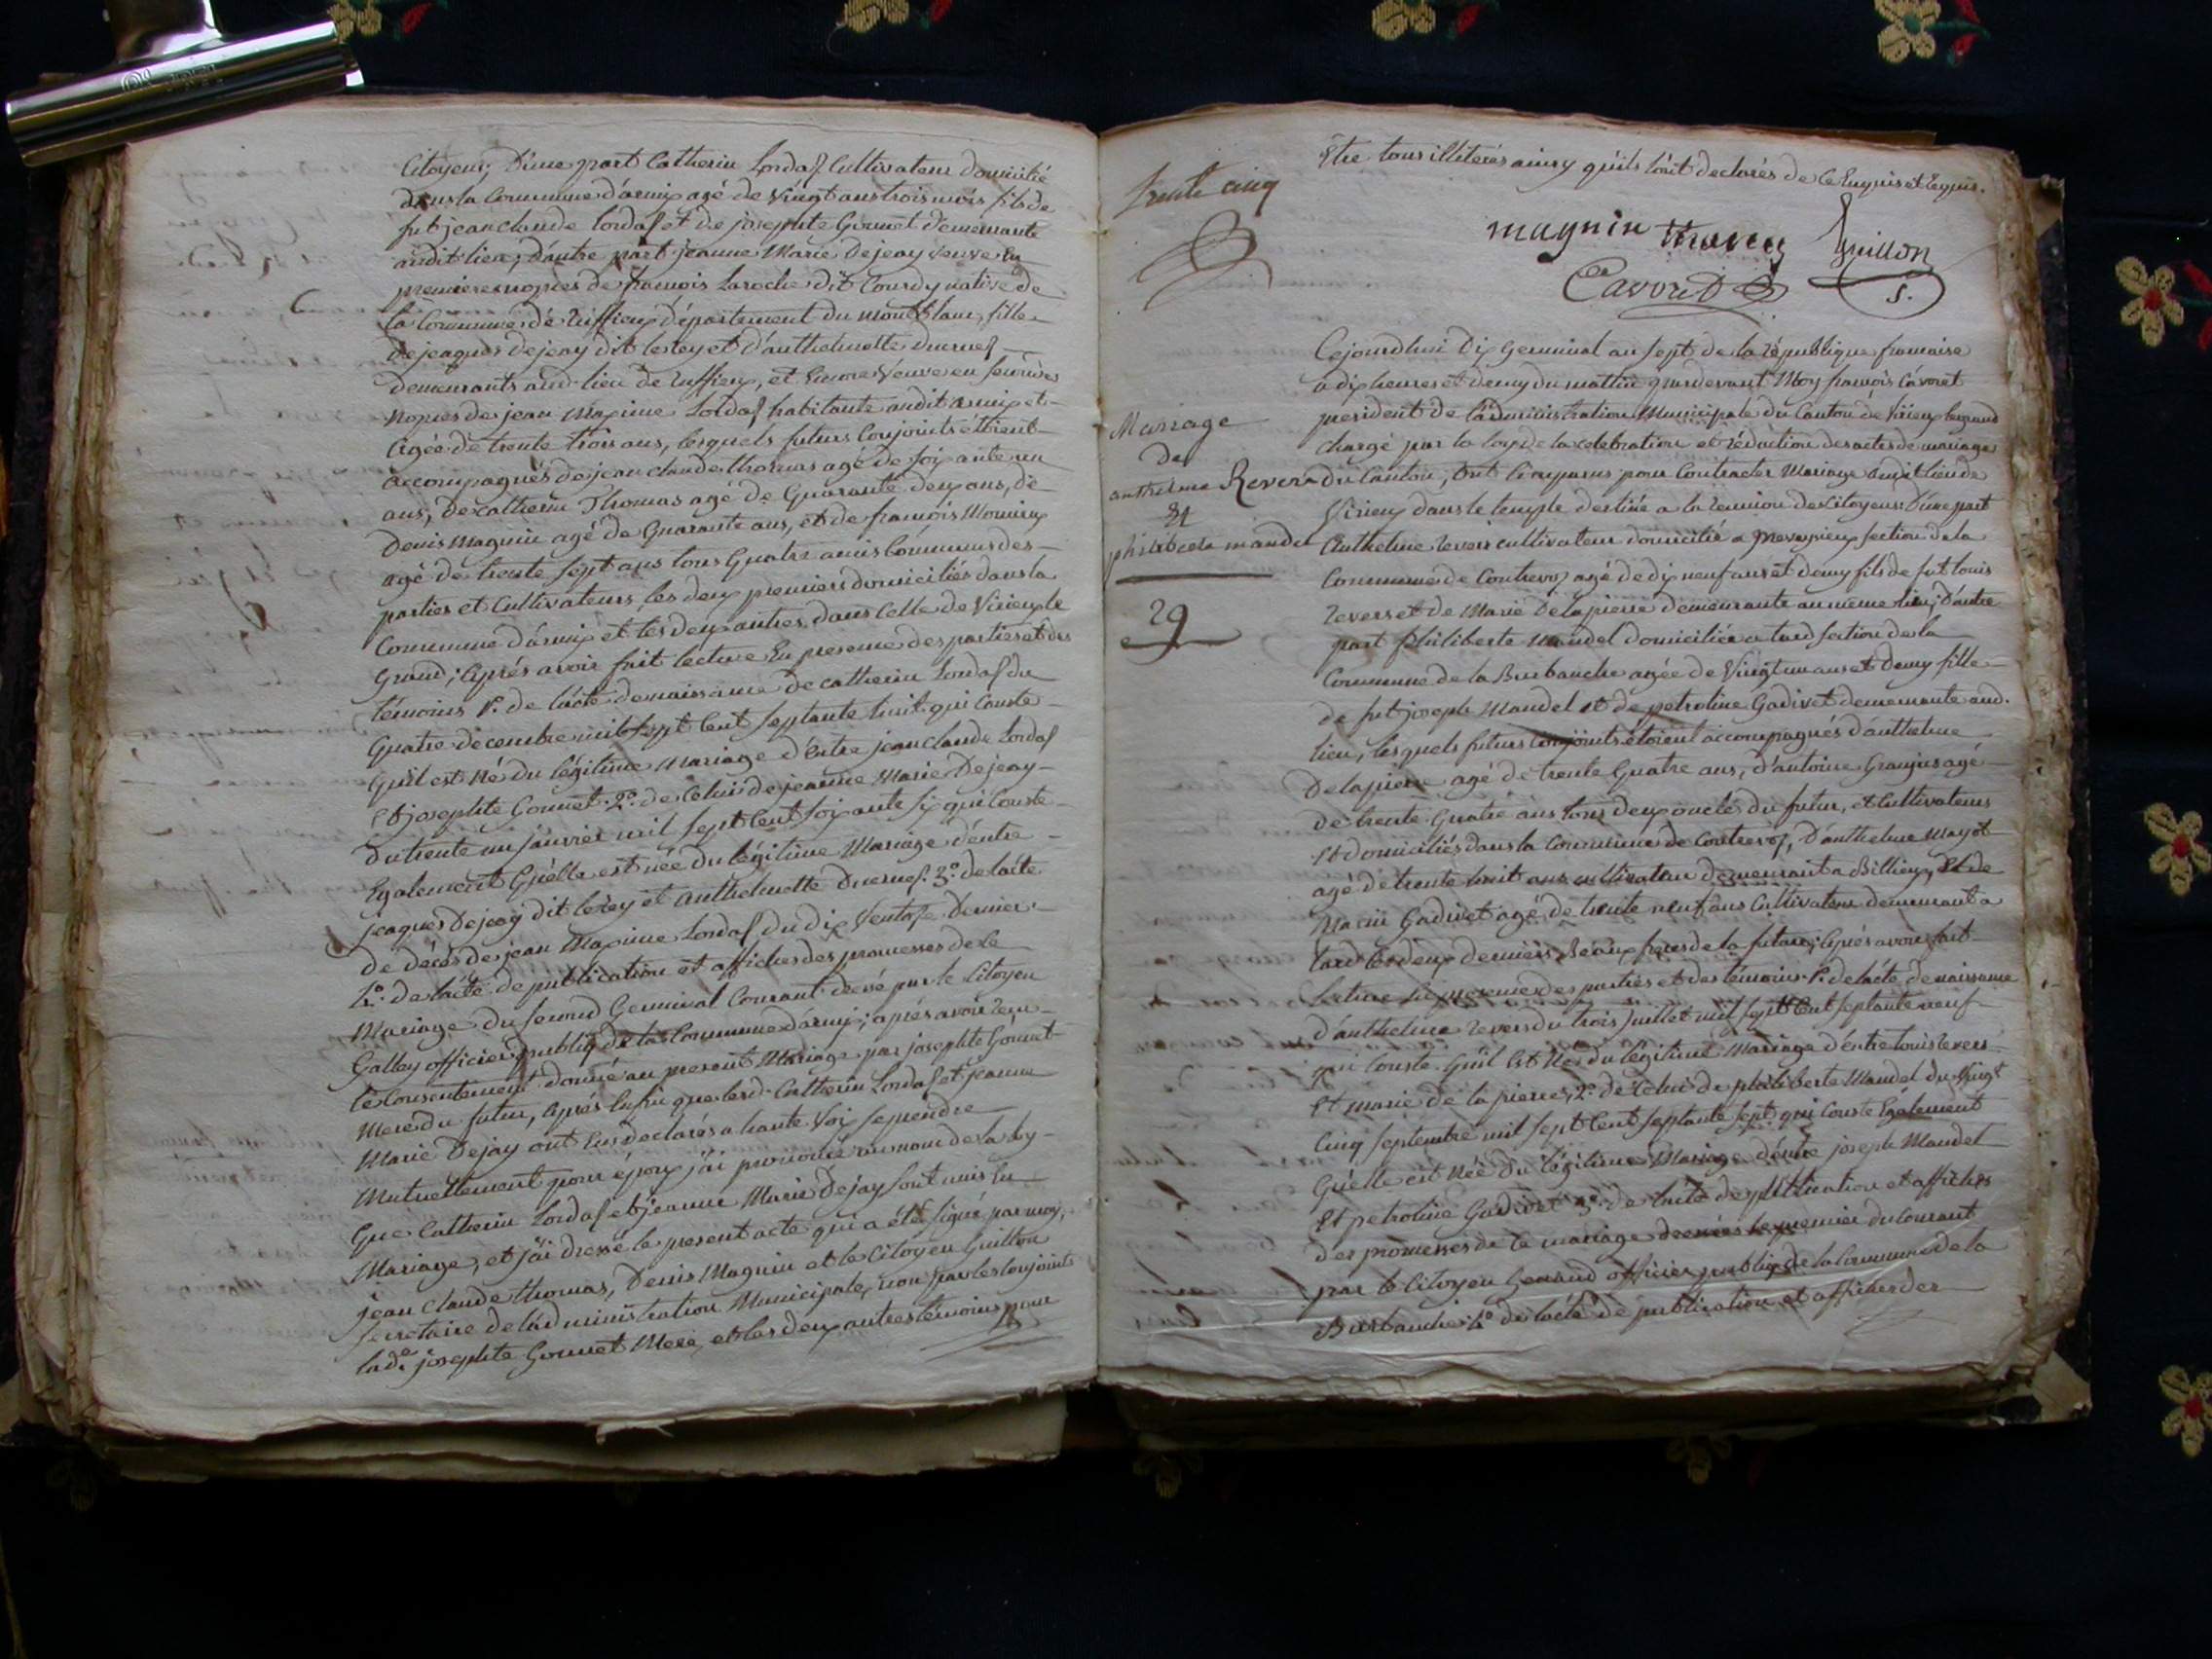 Citoyens; D'une part Catherin Lordas Cultivateur domicilié
dans la Commune d'armix agé de Vingt ans trois mois fils de
fut jean claude Lordas et de josephte Gonnet demeurante
audit lieu; d'autre part jeanne Marie Dejeay veuve En
premieres nopces de françois Laroche dit Courdy native de
la Commune de Ruffieux département du mont blanc, fille
de jeaques Dejeay dit le rey et d'anthelmette Ducruel
demeurants aud. lieu de Ruffieux, et Encore Veuve en secondes
Nopces de jean Maxime Lordas habitante audit armix et
agée de trente trois ans, lesquels futurs Conjoints étoient
accompagnés de jean claude thomas agé de soixante un
ans; de catherin Thomas agé de Quarante deux ans, de
Denis Magnin agé de Quarante ans, et de françois
agé de trente sept ans tous Quatre amis Communs des
parties et Cultivateurs, les deux premiers domiciliés dans la
Commune d'armix et les deux autres dans Celle de Virieu le
Grand; Après avoir fait lecture En presence des parties et des
témoins 1°. de l'acte de naissance de catherin Lordas du
Quatre decembre mil sept Cent septante huit qui Conste
Qu'il est Né du légitime Mariage d'Entre jean claude Lordas
Et josephte Gonnet. 2°. de Celui de jeanne Marie Dejeay
du trente un janvier mil sept Cent soixante six qui Conste
Egalement Qu'elle est née du légitime Mariage d'entre
jeaques Dejeay dit le rey et Anthelmette Ducruel. 3°. de l'acte
de décès de jean Maxime Lordas du dix Ventose Dernier
4°. de l'acte de publication et affiches des promesses de Ce
Mariage du second Germinal Courant dressé par le Citoyen
Galley officier publiq de la Commune d'armix; après avoir reçu
le Consentement donné au present Mariage par josephte Gonnet
Mere du futur, Après Enfin que lesd. Catherin Lordas et jeanne
Marie Dejay ont Eus declarés a haute Voix se prendre
Mutuellement pour époux j'ai prononcé au nom de la loy
Que Catherin Lordas et jeanne Marie Dejay sont unis En
Mariage, et j'ai dressé le present acte qui a été signé par moy,
jean claude thomas, Denis Magnin et le Citoyen Guillon
secretaire de l'administration Municipale, non par les Conjoints
lade. josephte Gonnet Mere, et les deux autres témoins pour
trente cinq
Etre tous illiterés ainsy qu'ils l'ont declarés de Ce Enquis et Requis.
magnin thomas Guillon
Cavoret s.
Mariage
De
anthelme Revers
Et
philiberte mandel
29
Cejourdhui Dix Germinal an sept de la République francaise
a dix heures et demy du mattin pardevant Moy françois Cavoret
president de l'administration Municipale du Canton de Virieu legrand
chargé par la loy de la celebration et rédaction des actes de mariage
du Canton, sont Comparus pour Contracter Mariage audit lieu de
Virieu dans le temple destiné a la reunion des Citoyens: D'une part
Anthelme revers cultivateur domicilié a preveyzieu section de la
Commune de Contrevoz agé de dix neuf ans et demy fils de fut louis
revers et de Marie Delapierre demeurante au même lieu; D'autre
part philiberte Mandel domiciliée a tard section de la
Commune de la Burbanche agée de Vingt un ans et Demy fille
de fut joseph Mandel et de petroline Gadivet demeurante aud.
lieu, lesquels futurs Conjoints étoient accompagnés d'anthelme
Delapierre agé de trente Quatre ans, d'antoine Granjus agé
de trente Quatre ans tous deux oncles du futur, et Cultivateurs
Et domiciliés dans la Commune de Contrevoz, D'anthelme Mayot
agé de trente huit ans cultivateur demeurant a Billieu, Et de
Marin Gadivet agé de trente neuf ans Cultivateur demeurant a
tard les deux derniers Beaux freres de la future; Après avoir fait
Lecture En presence des parties et des témoins 1°. de l'acte de naissance
d'anthelme revers du trois juillet mil sept Cent septante neuf
qui Conste Qu'il est Né du légitime Mariage d'Entre louis revers
Et marie de la pierre, 2°. de Celui de philiberte Mandel du Vingt
Cinq septembre mil sept Cent septante sept qui Conste Egalement
Qu'elle est Née du légitime Mariage d'entre joseph Mandel
Et petroline Gadivet 3°. de l'acte de publication et affiches
des promesses de Ce mariage dressées le premier du Courant
par le Citoyen officier publiq de la Commune de la
Burbanche. 4°. de l'acte de publication et affiches des